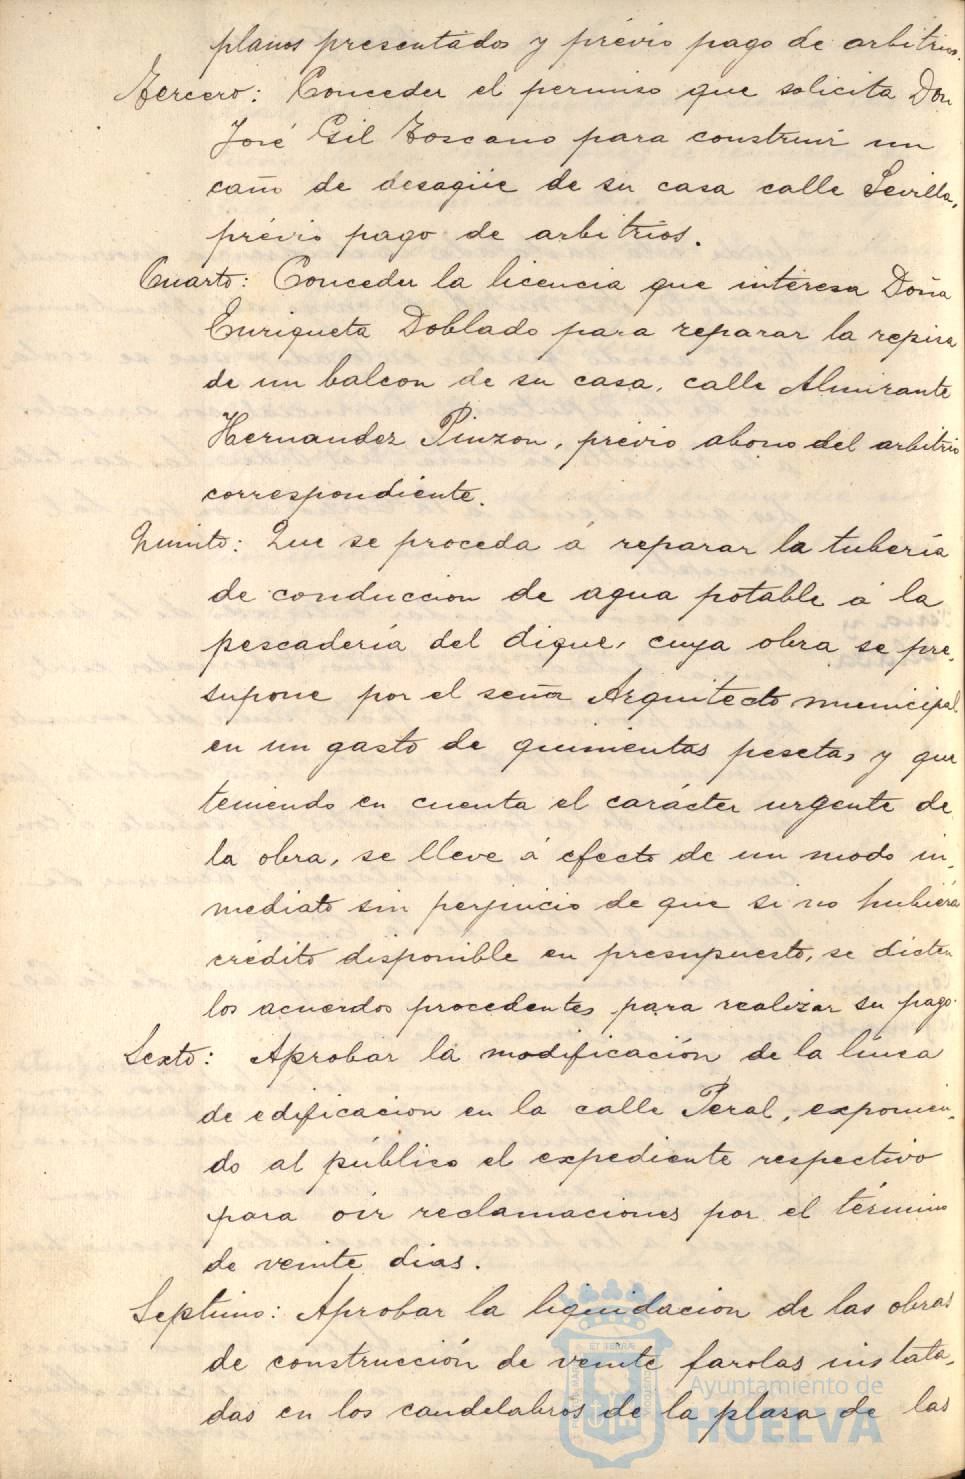 planos presentados y prévio pago de arbitrios.
Tercero: Conceder el permiso que solicita Don
José Gil Toscano para construir un
caño de desagüe de su casa calle Sevilla,
prévio pago de arbitrios.
Cuarto: Conceder la licencia que interesa Doña
Enriqueta Doblado para reparar la repisa
de un balcon de su casa, calle Almirante
Hernandez Pinzon, prévio abono del arbitrio
correspondiente.
Quinto: Que se proceda á reparar la tubería
de conduccion de agua potable á la
pescadería del dique, cuya obra se pre-
supone por el señor Arquitecto municipal
en un gasto de quinientas pesetas, y que
teniendo en cuenta el carácter urgente de
la obra, se lleve á efecto de un modo in-
mediato sin perjuicio de que si no hubiera
crédito disponible en presupuesto, se dicten
los acuerdos procedentes para realizar su pago.
Sexto: Aprobar la modificación de la línea
de edificacion en la calle Peral, exponien-
do al público el expediente respectivo
para oír reclamaciones por el término
de veinte dias.
Séptimo: Aprobar la liquidacion de las obras
de construcción de veinte farolas instala-
das en los candelabros de la plaza de las
Ayuntamiento de
HUELVA